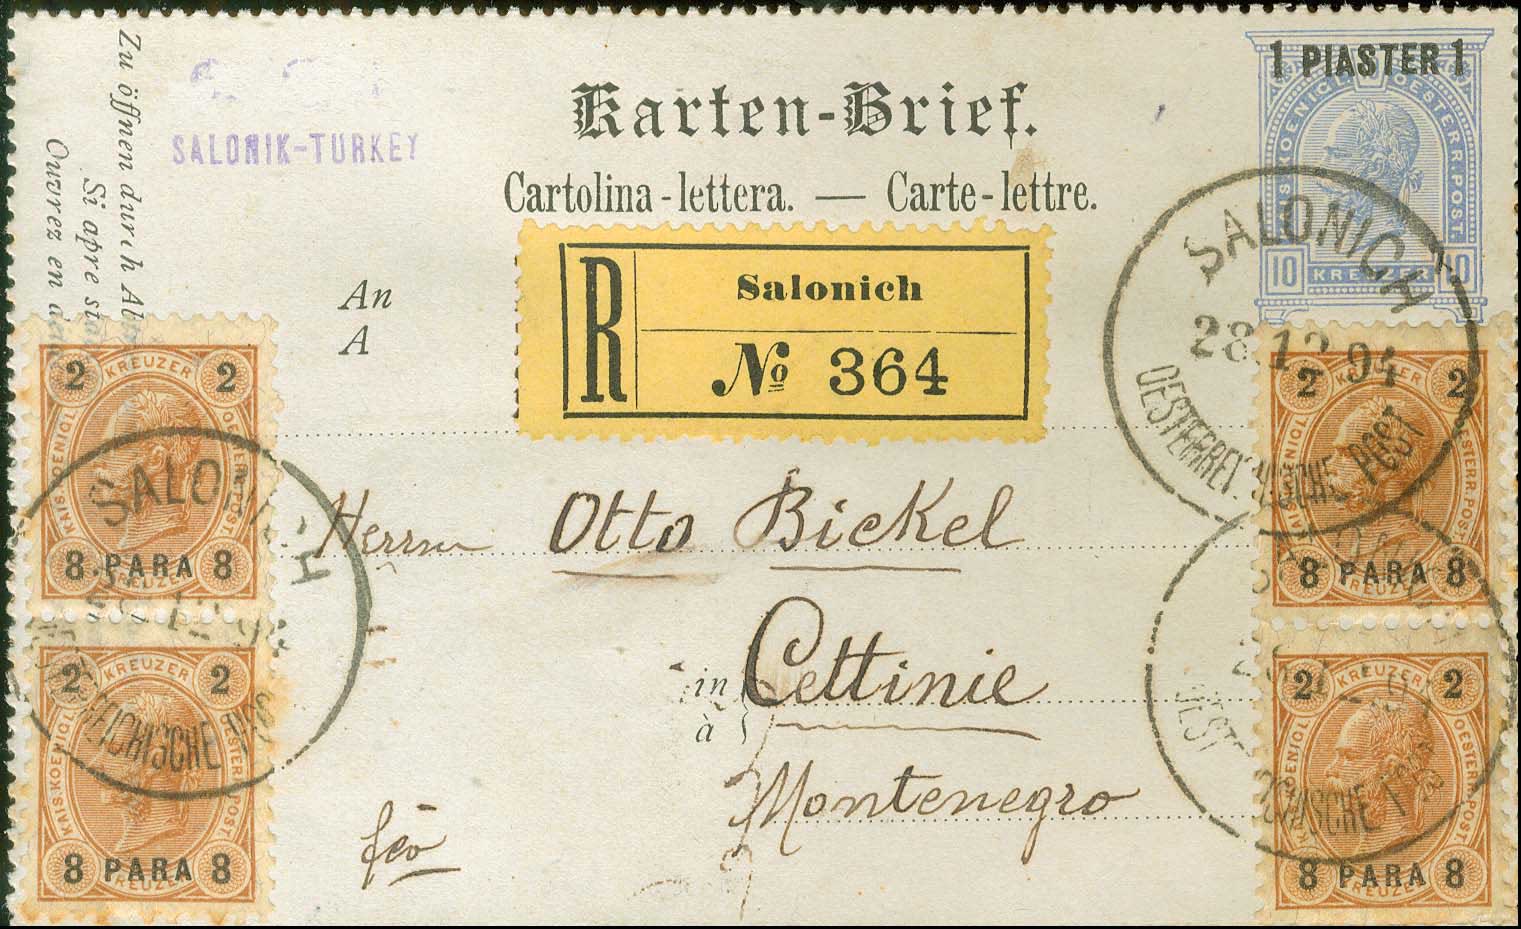 Karten-Brief.
Cartolina-lettera. — Carte-lettre.
SALONIK-TURKEY
Zu öffnen durch
Si apre
Ouvrez en
1 PIASTER 1
10 KREUZER 10
An
A
R
Salonich
№ 364
SALONICH
28 12 94
OESTERREICHISCHE POST
Herrn Otto Bickel
in
à
Cettinie
Montenegro
fco
2 KREUZER 2
KAIS. KOENIGL. OESTERR. POST.
8 PARA 8
2 KREUZER 2
KAIS. KOENIGL. OESTERR. POST.
8 PARA 8
2 KREUZER 2
8 PARA 8
2 KREUZER 2
8 PARA 8